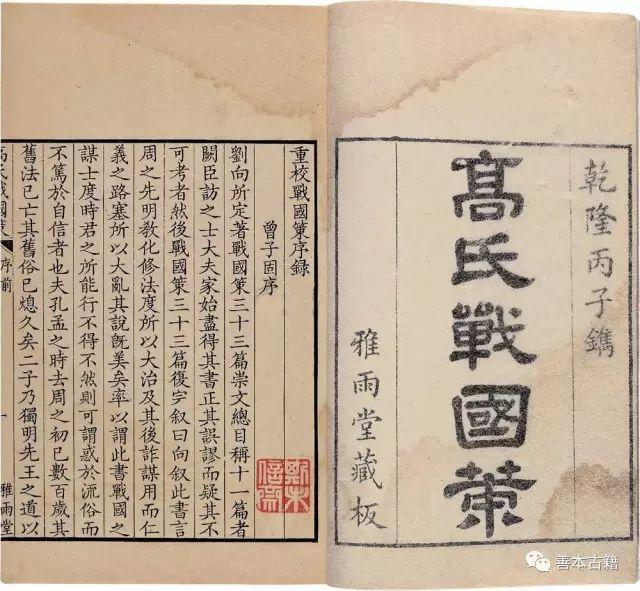 乾隆丙子鐫
髙氏戰國策
雅雨堂藏板
重校戰國策序録
曾子固序
劉向所定著戰國策三十三篇崇文總目稱十一篇者
闕臣訪之士大夫家始盡得其書正其誤謬而疑其不
可考者然後戰國策三十三篇復字叙曰向叙此書言
周之先明敎化修法度所以大治及其後詐謀用而仁
義之路塞所以大亂其說旣美矣率以謂此書戰國之
謀士度時君之所能行不得不然則可謂惑於流俗而
不篤於自信者也夫孔孟之時去周之初已數百歲其
舊法已亡其舊俗已熄久矣二子乃獨明先王之道以
高氏戰國策 序前 一 雅雨堂
善本古籍